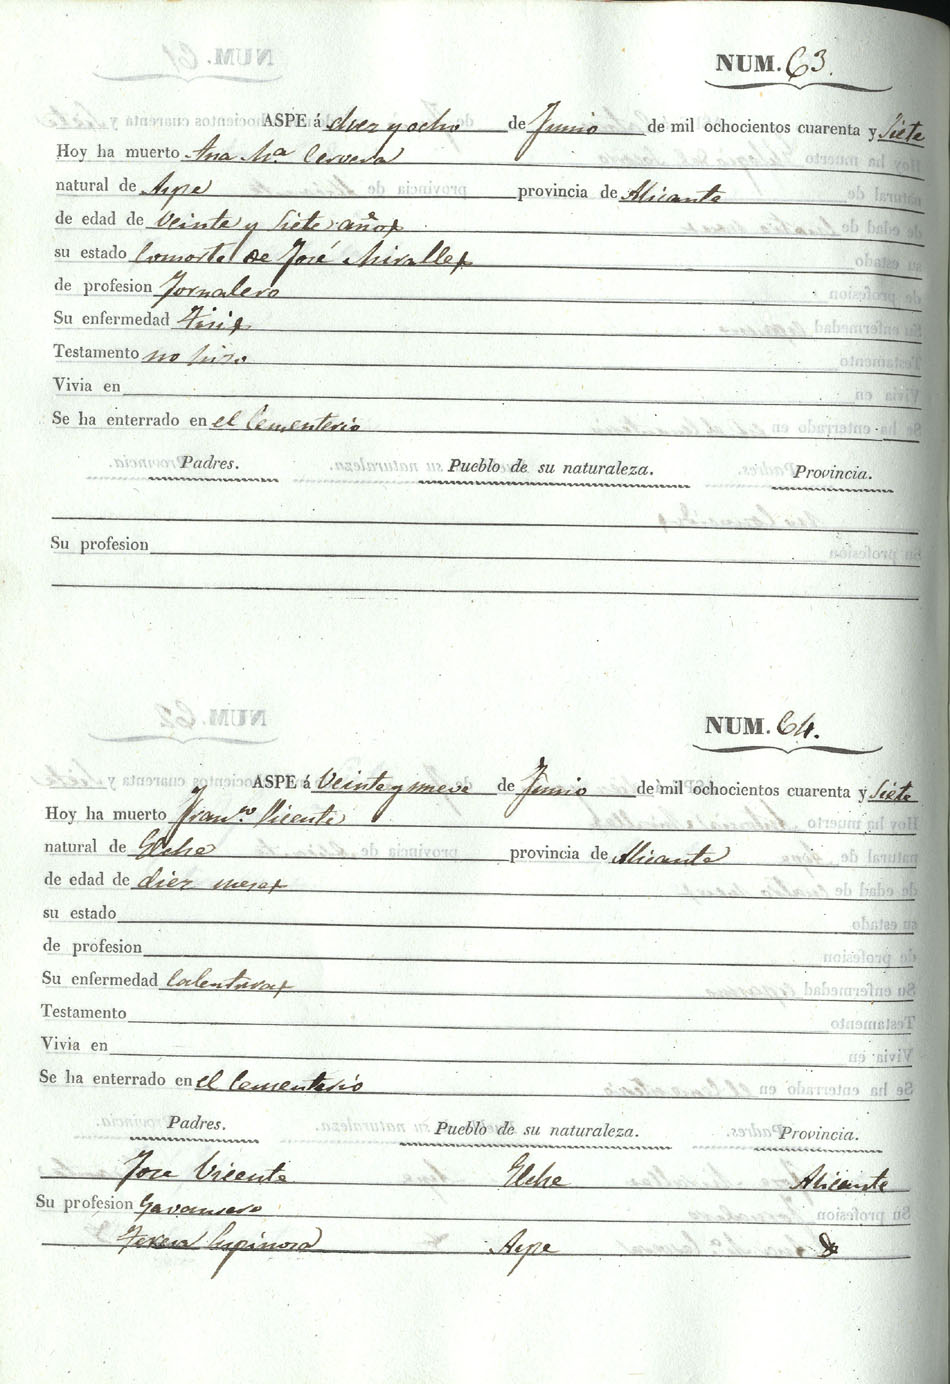 NUM. 63.
ASPE á diez y ocho de Junio de mil ochocientos cuarenta y Siete
Hoy ha muerto Ana Mª Cervera
natural de Aspe provincia de Alicante
de edad de Veinte y Siete años
su estado Consorte de José Miralles
de profesion Jornalero
Su enfermedad Tisis
Testamento no hizo
Vivia en
Se ha enterrado en el Cementerio
Padres. Pueblo de su naturaleza. Provincia.
Su profesion
NUM. 64.
ASPE á Veinte y nueve de Junio de mil ochocientos cuarenta y Siete
Hoy ha muerto Franco Vicente
natural de Elche provincia de Alicante
de edad de diez meses
su estado
de profesion
Su enfermedad Calenturas
Testamento
Vivia en
Se ha enterrado en el Cementerio
Padres. Pueblo de su naturaleza. Provincia.
Jose Vicente Elche Alicante
Su profesion
Teresa Espinosa Aspe